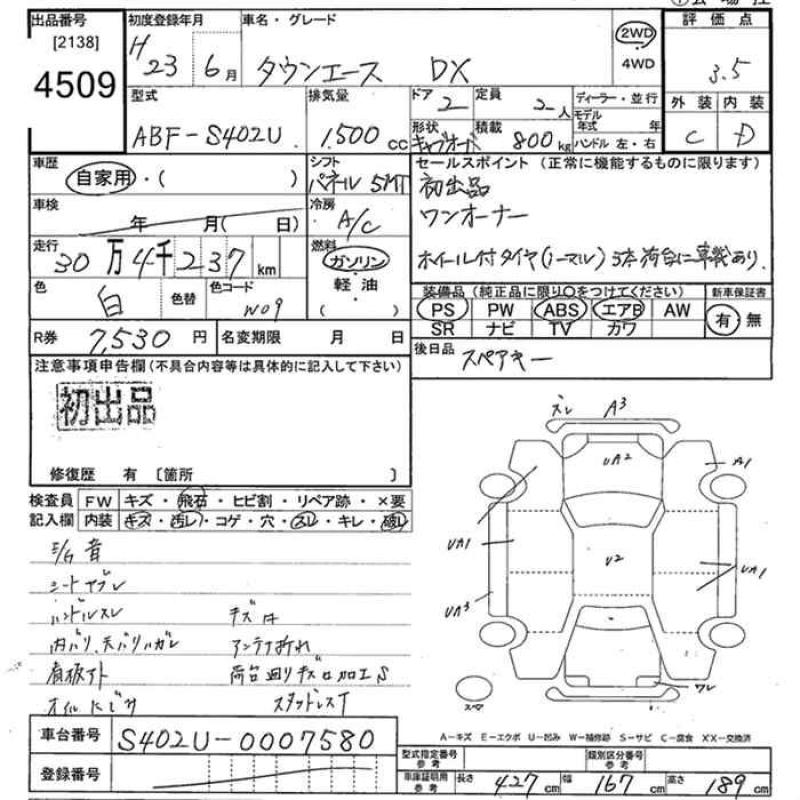 出品番号
[2138]
4509
初度登録年月
H 23 6月
車名・グレード
タウンエース DX
2WD
4WD
評価点
3.5
型式
ABF-S402U
排気量
1,500 cc
ドア
2
定員
2人
ディーラー・並行
モデル年式 年
形状
キャブオーバ
積載
800kg
ハンドル 左・右
外装 内装
C D
車歴
自家用・( )
シフト
パネル 5MT
セールスポイント (正常に機能するものに限ります)
初出品
ワンオーナー
ホイール付タイヤ(ノーマル) 5本荷台に車載あり.
車検
年 月( 日)
冷房
A/C
走行
30万4千237km
燃料
ガソリン
軽油
( )
色
白
色替
色コード
W09
装備品 (純正品に限り○をつけてください)
新車保証書
PS PW ABS エアB AW
SR ナビ TV カワ
有・無
R券
7,530円
名変期限 月 日
後日品
スペアキー
注意事項申告欄(不具合内容等は具体的に記入して下さい)
初出品
修復歴 有 〔箇所 〕
検査員
記入欄
FW キズ・飛石・ヒビ割・リペア跡・×要
内装 キズ・汚レ・コゲ・穴・スレ・キレ・破レ
E/G 音
シートヤブレ
ハンドルスレ
キズ有
内バリ、天バリハガレ
アンテナ折れ
看板アト
荷台廻りキズ有加工S
オイルにじみ
スタッドレスT
ズレ A3
UA2
A1
UA1
U2
UA1
UA3
ワレ
スペア
A-キズ E-エクボ U-凹み W-補修跡 S-サビ C-腐食 XX-交換済
車台番号
S402U-0007580
登録番号
型式指定番号
参考
類別区分番号
参考
車庫証明用
参考
長さ 427cm 幅 167cm 高さ 189cm